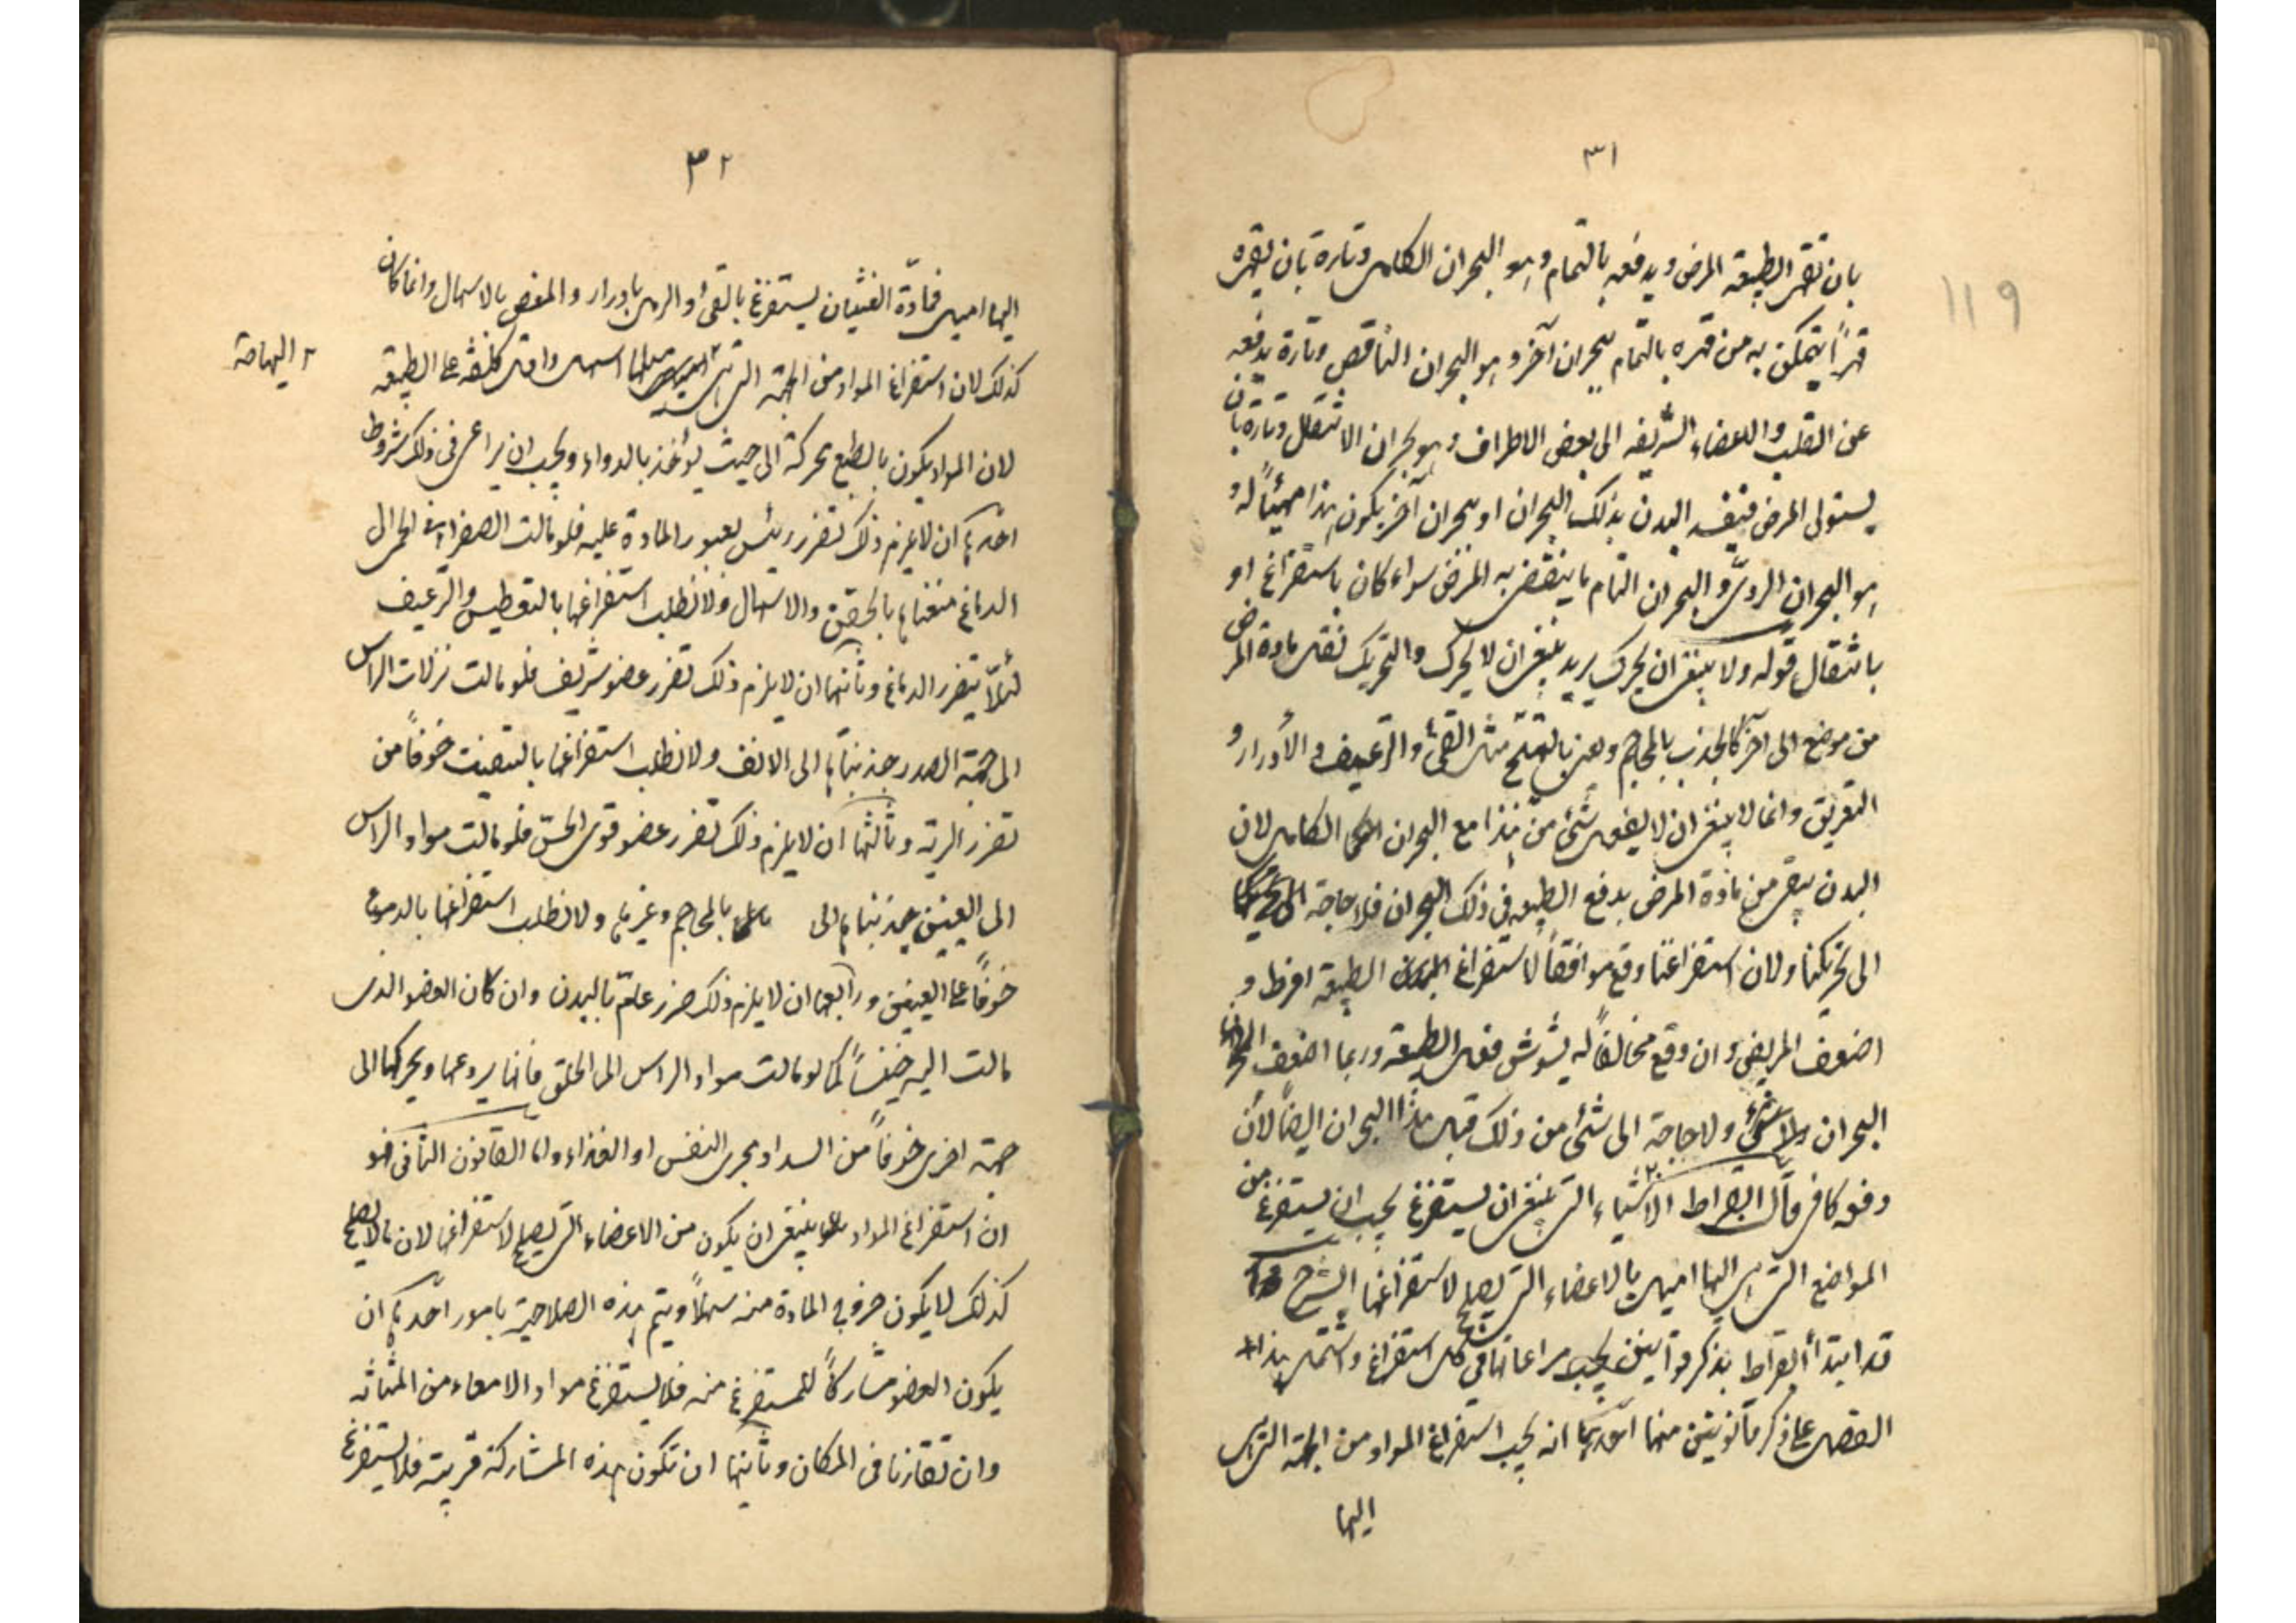 ٣١
119
بان تقهر الطبيعة المرض ويدفعه بالتمام وهو البحران الكامل وتارة بان يقهره
قهراً يتمكن به من قهره بالتمام ببحران آخر وهو البحران الناقص وتارة يدفعه
عن القلب والاعضاء الشريفه الى بعض الاطراف وهو بحران الانتقال وتارة بان
يستولى المرض فيفسد البدن بذلك البحران او ببحران آخر يكون هذا مهيئاً له و
هو البحران الردىّ والبحران التام ما ينقضى به المرض سواء كان باستفراغ او
بانتقال قوله ولا ينبغى ان يحرك يريد ينبغى ان لا يحرك والتحريك نقل مادة المرض
من موضع الى آخر كالجذب بالمحاجم ويعنى بالتهيّج مثل القئ والترعيف والأدرار و
التعريق وانما لا ينبغى ان لا يفعل شئ من هذا مع البحران الكامل لان
البدن ينقى من مادة المرض بدفع الطبيعه فى ذلك البحران فلا حاجة
الى تحريكنا ولان استفراغنا وقع موافقاً لاستفراغ الطبيعة افرط و
اضعف المريض وان وقع مخالفاً له يشوش فعل الطبيعة وربما اضعف
البحران ولا حاجة الى شئ من ذلك قبل هذا البحران ايضاً لأن
دفعه كاف قال ابقراط الاشياء التى ينبغى ان يستفرغ يجب ان يستفرغ من
المواضع التى هى اليها اميل بالاعضاء التى يصلح لاستفراغها الشرح
قد ابتدأ ابقراط بذكر قوانين يجب مراعاتها فى كل استفراغ واشتمل هذا
الفصل على ذكر قانونين منها احدهما انه يجب استفراغ المواد من الجهة التى هى
اليها
٣٢
اليها اميل فمادّة الغثيان يستفرغ بالقئ والرمل بادرار والمغص بالاسهال وانما كان
كذلك لان استفراغ المواد من الجهة التى هى اسهل واقل كلفة على الطبيعة
٢ اليها مة
لان المواد يكون بالطبع محركة الى حيث يؤخذ بالدواء ويجب ان يراعى فى ذلك شروط
احدها ان لا يلزم ذلك تضرر رئيس لعبور المادة عليه فلو مالت الصفرا فى الحمى الى
الدماغ منعناها بالحقن والاسهال ولا نطلب استفراغها بالتعطيس والترعيف
لئلّا يتضرر الدماغ وثانيها ان لا يلزم ذلك تضرر عضو شريف فلو مالت نزلات الراس
الى جهة الصدر جذبناها الى الانف ولا نطلب استفراغها بالتنفيث خوفاً من
تضرر الرية وثالثها ان لا يلزم ذلك تضرر عضو قوى الحسّ فلو مالت مواد الراس
الى العينين جذبناها الى بالمحاجم وغيرها ولا نطلب استفراغها بالدموع
خوفاً على العينين ورابعها ان لا يلزم ذلك ضرر عامّ بالبدن وان كان العضو الذى
مالت اليه خسيساً كما لو مالت مواد الراس الى الحلق فانا نردعها ونحركها الى
جهة اخرى خوفاً من السداد مجرى النفس او الغذاء واما القانون الثانى فهو
ان استفراغ المواد ينبغى ان يكون من الاعضاء التى يصلح لاستفراغها لان ما لا يصلح
كذلك لا يكون خروج المادة منه سهلاً ويتم هذه الصلاحية بامور احدها ان
يكون العضو مشاركاً للمستفرغ منه فلا يستفرغ مواد الامعاء من المثانه
وان تقارنا فى المكان وثانيها ان تكون هذه المشاركة قريبة فلا يستفرغ